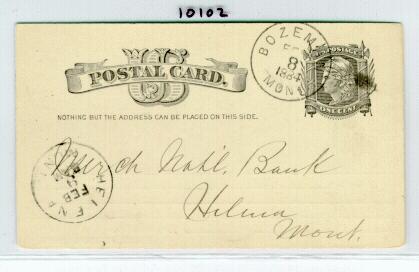 10102
U S
POSTAL CARD.
NOTHING BUT THE ADDRESS CAN BE PLACED ON THIS SIDE.
BOZEM
FEB
8
1884
MONT
U.S. POSTAGE
ONE CENT
HELENA
FEB
9
Merch Natl. Bank
Helena
Mont.